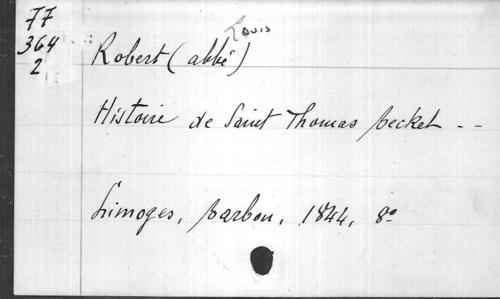 77
364
2
Louis
Robert (abbé)
Histoire de Saint Thomas becket - -
Limoges, barbou, 1844, 8o